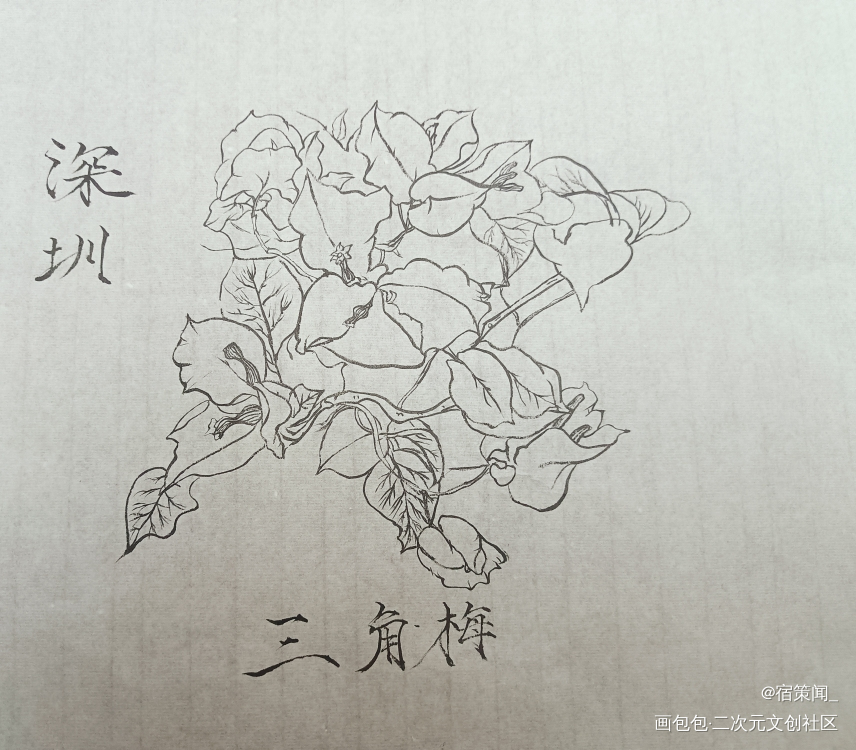 深
圳
三角梅
@宿策闻_
画包包·二次元文创社区